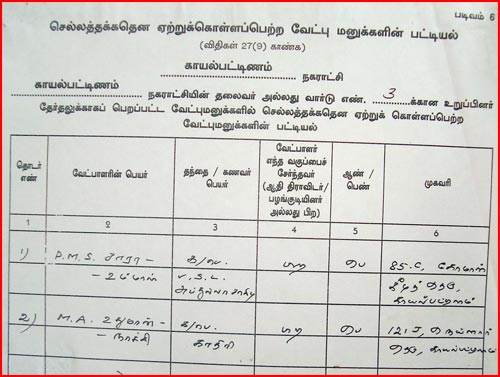 படிவம் 6
செல்லத்தக்கதென ஏற்றுக்கொள்ளப்பெற்ற வேட்பு மனுக்களின் பட்டியல்
(விதிகள் 27(9) காண்க)
காயல்பட்டிணம் நகராட்சி
காயல்பட்டிணம் நகராட்சியின் தலைவர் அல்லது வார்டு எண். 3 க்கான உறுப்பினர்
தேர்தலுக்காகப் பெறப்பட்ட வேட்புமனுக்களில் செல்லத்தக்கதென ஏற்றுக் கொள்ளப்பெற்ற
வேட்புமனுக்களின் பட்டியல்
தொடர் எண்
வேட்பாளரின் பெயர்
தந்தை / கணவர் பெயர்
வேட்பாளர் எந்த வகுப்பைச் சேர்ந்தவர் (ஆதி திராவிடர்/ பழங்குடியினர் அல்லது பிற)
ஆண் / பெண்
முகவரி
1 2 3 4 5 6
1) P.M.S. சாரா உம்மாள்
க/பெ.
பிற
பெ
85-C, கோமான்
2) M.A. உதுமான் நாச்சி
க/பெ. காதிரி
பிற
பெ
121
தெரு, காயல்பட்டணம்